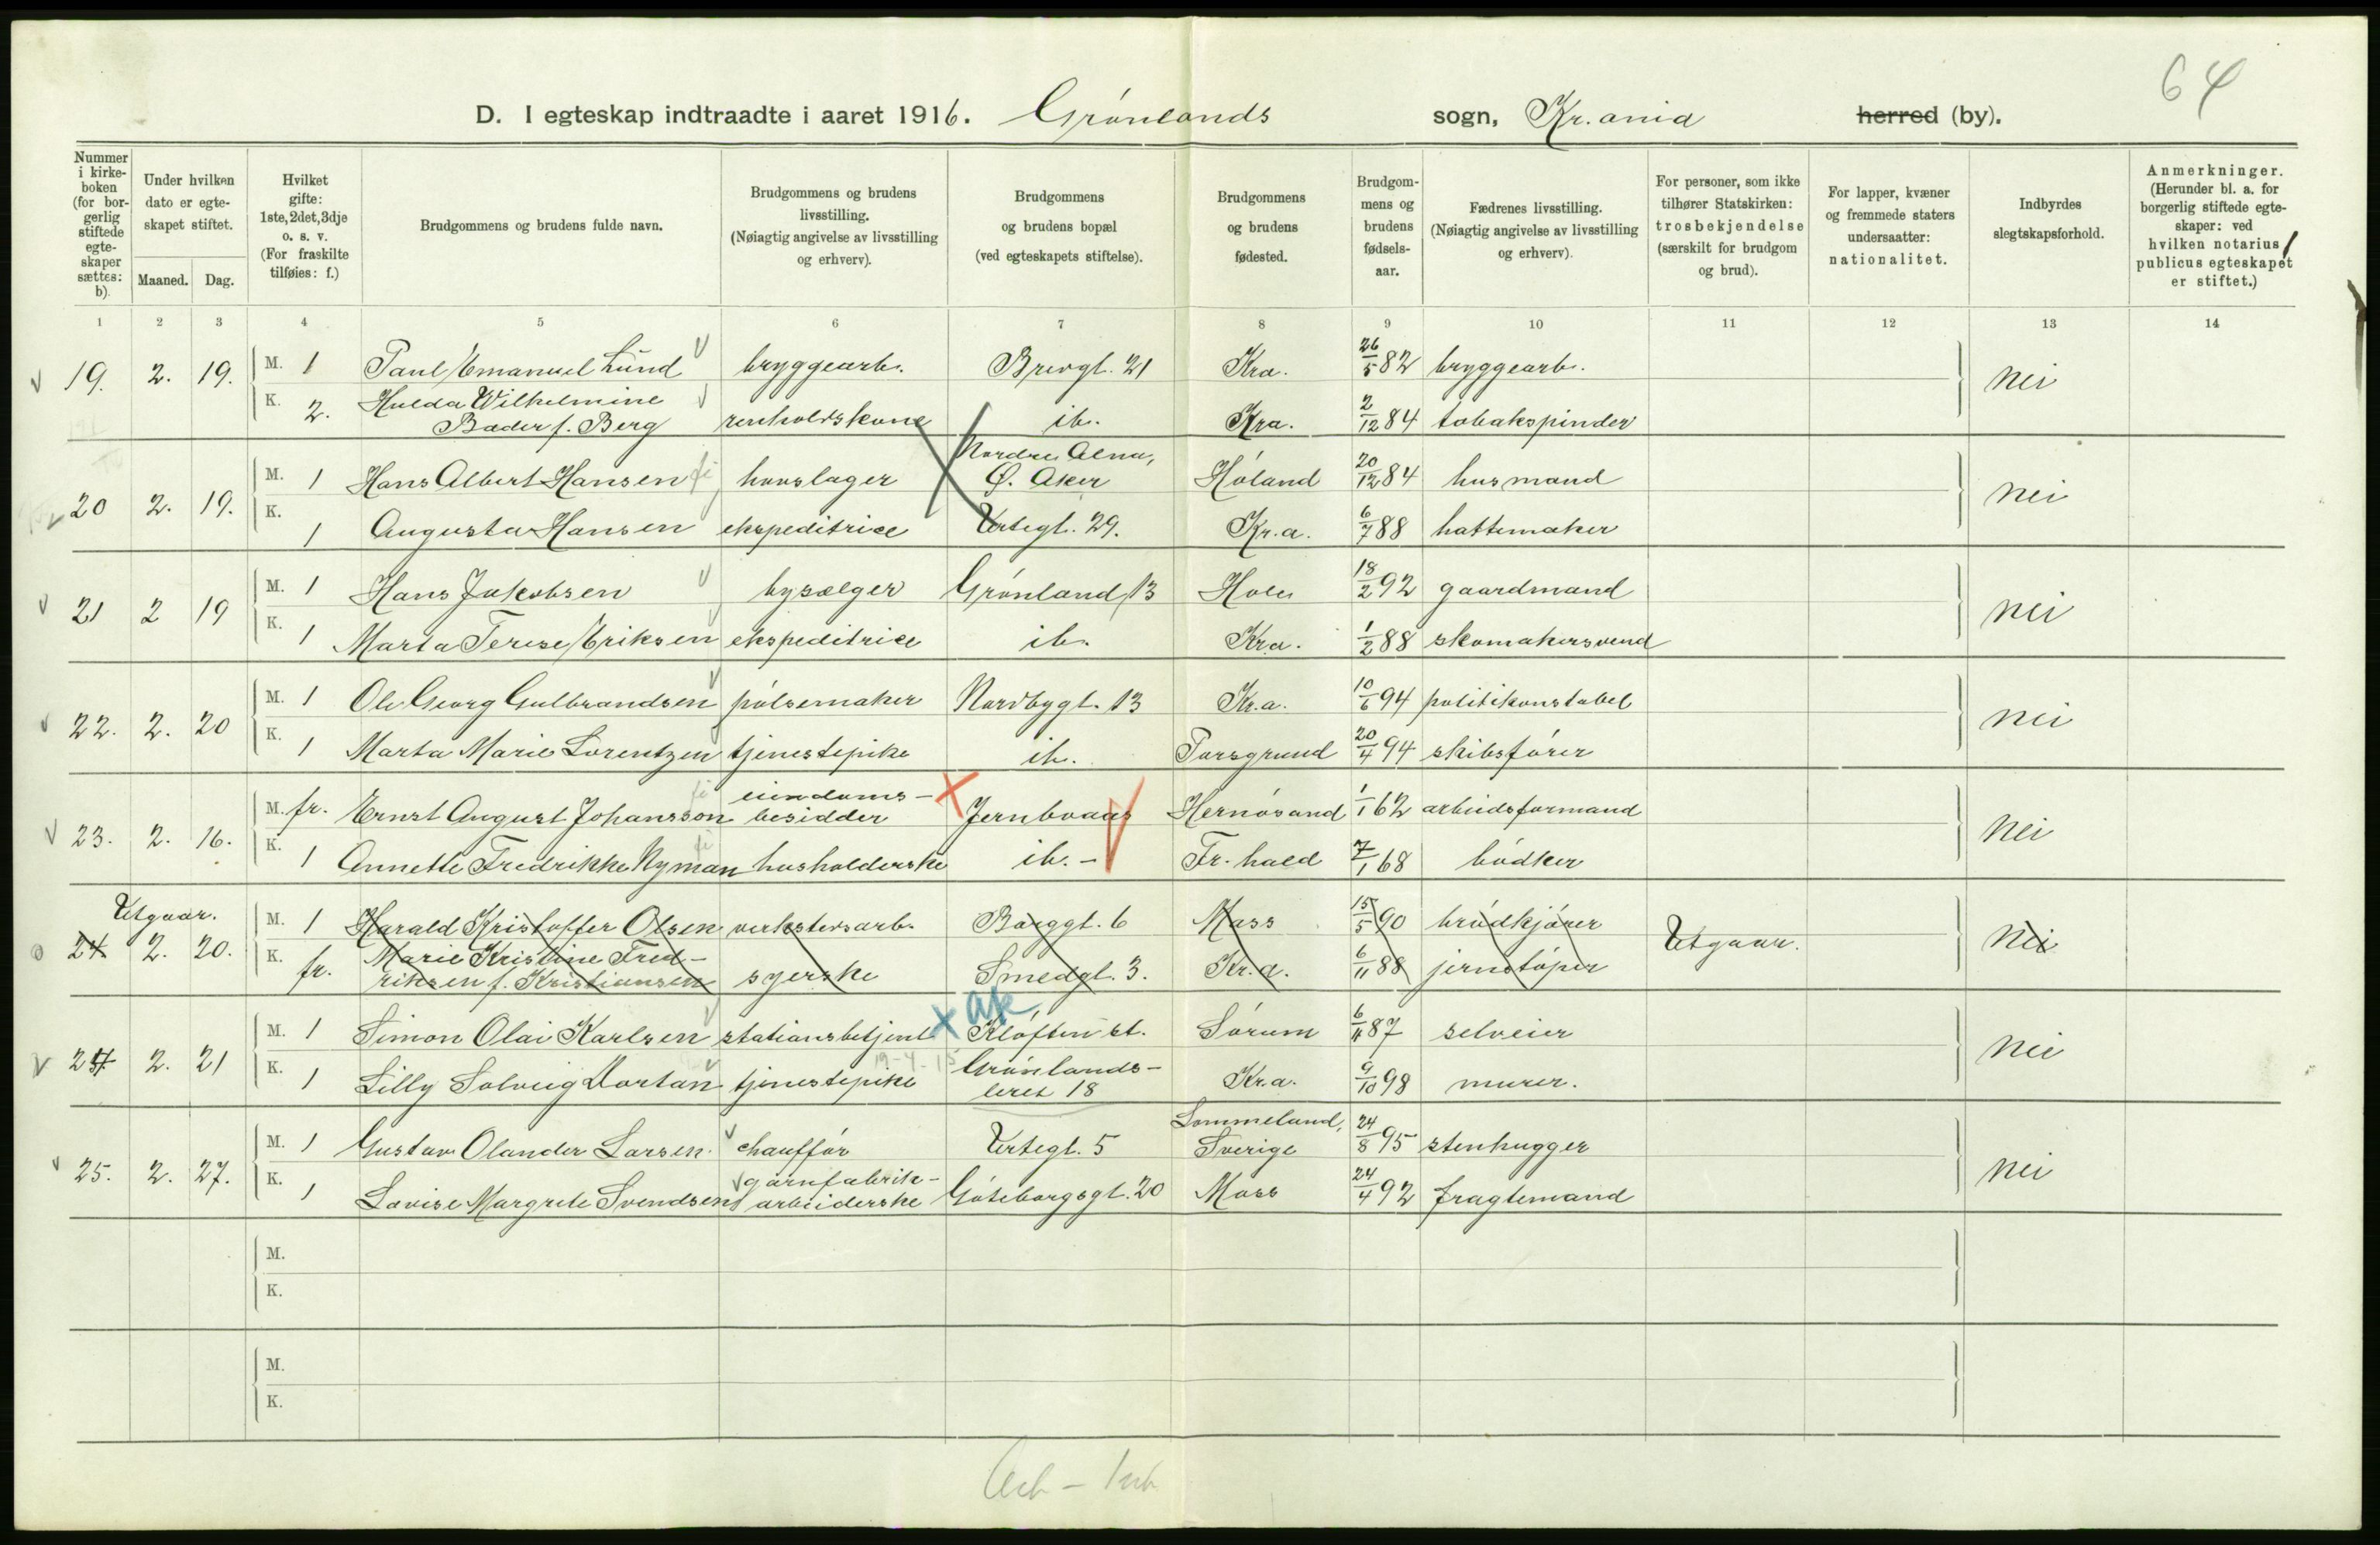 64
D. I egteskap indtraadte i aaret 1916. Grønlands sogn, Kr.ania herred (by).
Nummer i kirkeboken (for borgerlig stiftede egteskaper sættes: b).
Under hvilken dato er egteskapet stiftet.
Maaned. Dag.
Hvilket gifte: 1ste, 2det, 3dje o. s. v. (For fraskilte tilføies: f.)
Brudgommens og brudens fulde navn.
Brudgommens og brudens livsstilling. (Nøiagtig angivelse av livsstilling og erhverv).
Brudgommens og brudens bopæl (ved egteskapets stiftelse).
Brudgommens og brudens fødested.
Brudgommens og brudens fødselsaar.
Fædrenes livsstilling. (Nøiagtig angivelse av livsstilling og erhverv).
For personer, som ikke tilhører Statskirken: trosbekjendelse (særskilt for brudgom og brud).
For lapper, kvæner og fremmede staters undersaatter: nationalitet.
Indbyrdes slegtskapsforhold.
Anmerkninger. (Herunder bl. a. for borgerlig stiftede egteskaper: ved hvilken notarius publicus egteskapet er stiftet.)
1 2 3 4 5 6 7 8 9 10 11 12 13 14
19. 2. 19. M. 1 Paul Emanuel Lund bryggearb. Brevgt. 21 Kra. 26/5 82 bryggearb. nei
K. 2. Hulda Wilhelmine
Bader f. Berg renholdskone ib. Kra. 2/12 84 tobakspinder
Nordre Alna,
20 2. 19. M. 1 Hans Albert Hansen hovslager Ø. Aker Høland 20/12 84 husmand nei
K. 1 Augusta Hansen ekspeditrice Urtegt. 29. Kr.a. 6/7 88 hattemaker
21 2 19 M. 1 Hans Jakobsen bysælger Grønland 13 Hole 18/2 92 gaardmand nei
K. 1 Marta Terese Eriksen ekspeditrice ib. Kra. 1/2 88 skomakersvend
22. 2. 20 M. 1 Ole Georg Gulbrandsen pølsemaker Nordbygt. 13 Kr.a. 10/6 94 politikonstabel nei
K. 1 Marta Marie Lorentzen tjenestepike ib. Porsgrund 20/4 94 skibsfører
eiendoms-
23. 2. 16. M. fr. Ernst August Johansson besidder Jernboaas Hernøsand 1/1 62 arbeidsformand nei
K. 1 Annette Fredrikke Nyman husholderske ib. - Fr.hald 7/1 68 bødker
Utgaar.
24 2. 20. M. 1 Harald Kristoffer Olsen verkstedsarb. Borggt. 6 Moss 15/5 90 brødkjører Utgaar. nei
K. fr. Marie Kristine Fred-
riksen f. Kristiansen syerske Smedgt. 3. Kr.a. 6/11 88 jernstøper
ak
24 2. 21 M. 1 Simon Olai Karlsen stationsbetjent Kløften st. Sørum 6/11 87 selveier nei
19-4-15 Grønlands-
K. 1 Lilly Solveig Dortan tjenestepike leret 18 Kr.a. 9/10 98 murer.
Lommeland,
25. 2. 27. M. 1 Gustav Olander Larsen chauffør Urtegt. 5 Sverige 24/8 95 stenhugger nei
garnfabrik-
K. 1 Lovise Margrete Svendsen arbeiderske Göteborgsgt. 20 Moss 24/4 92 fragtemand
M.
K.
M.
K.